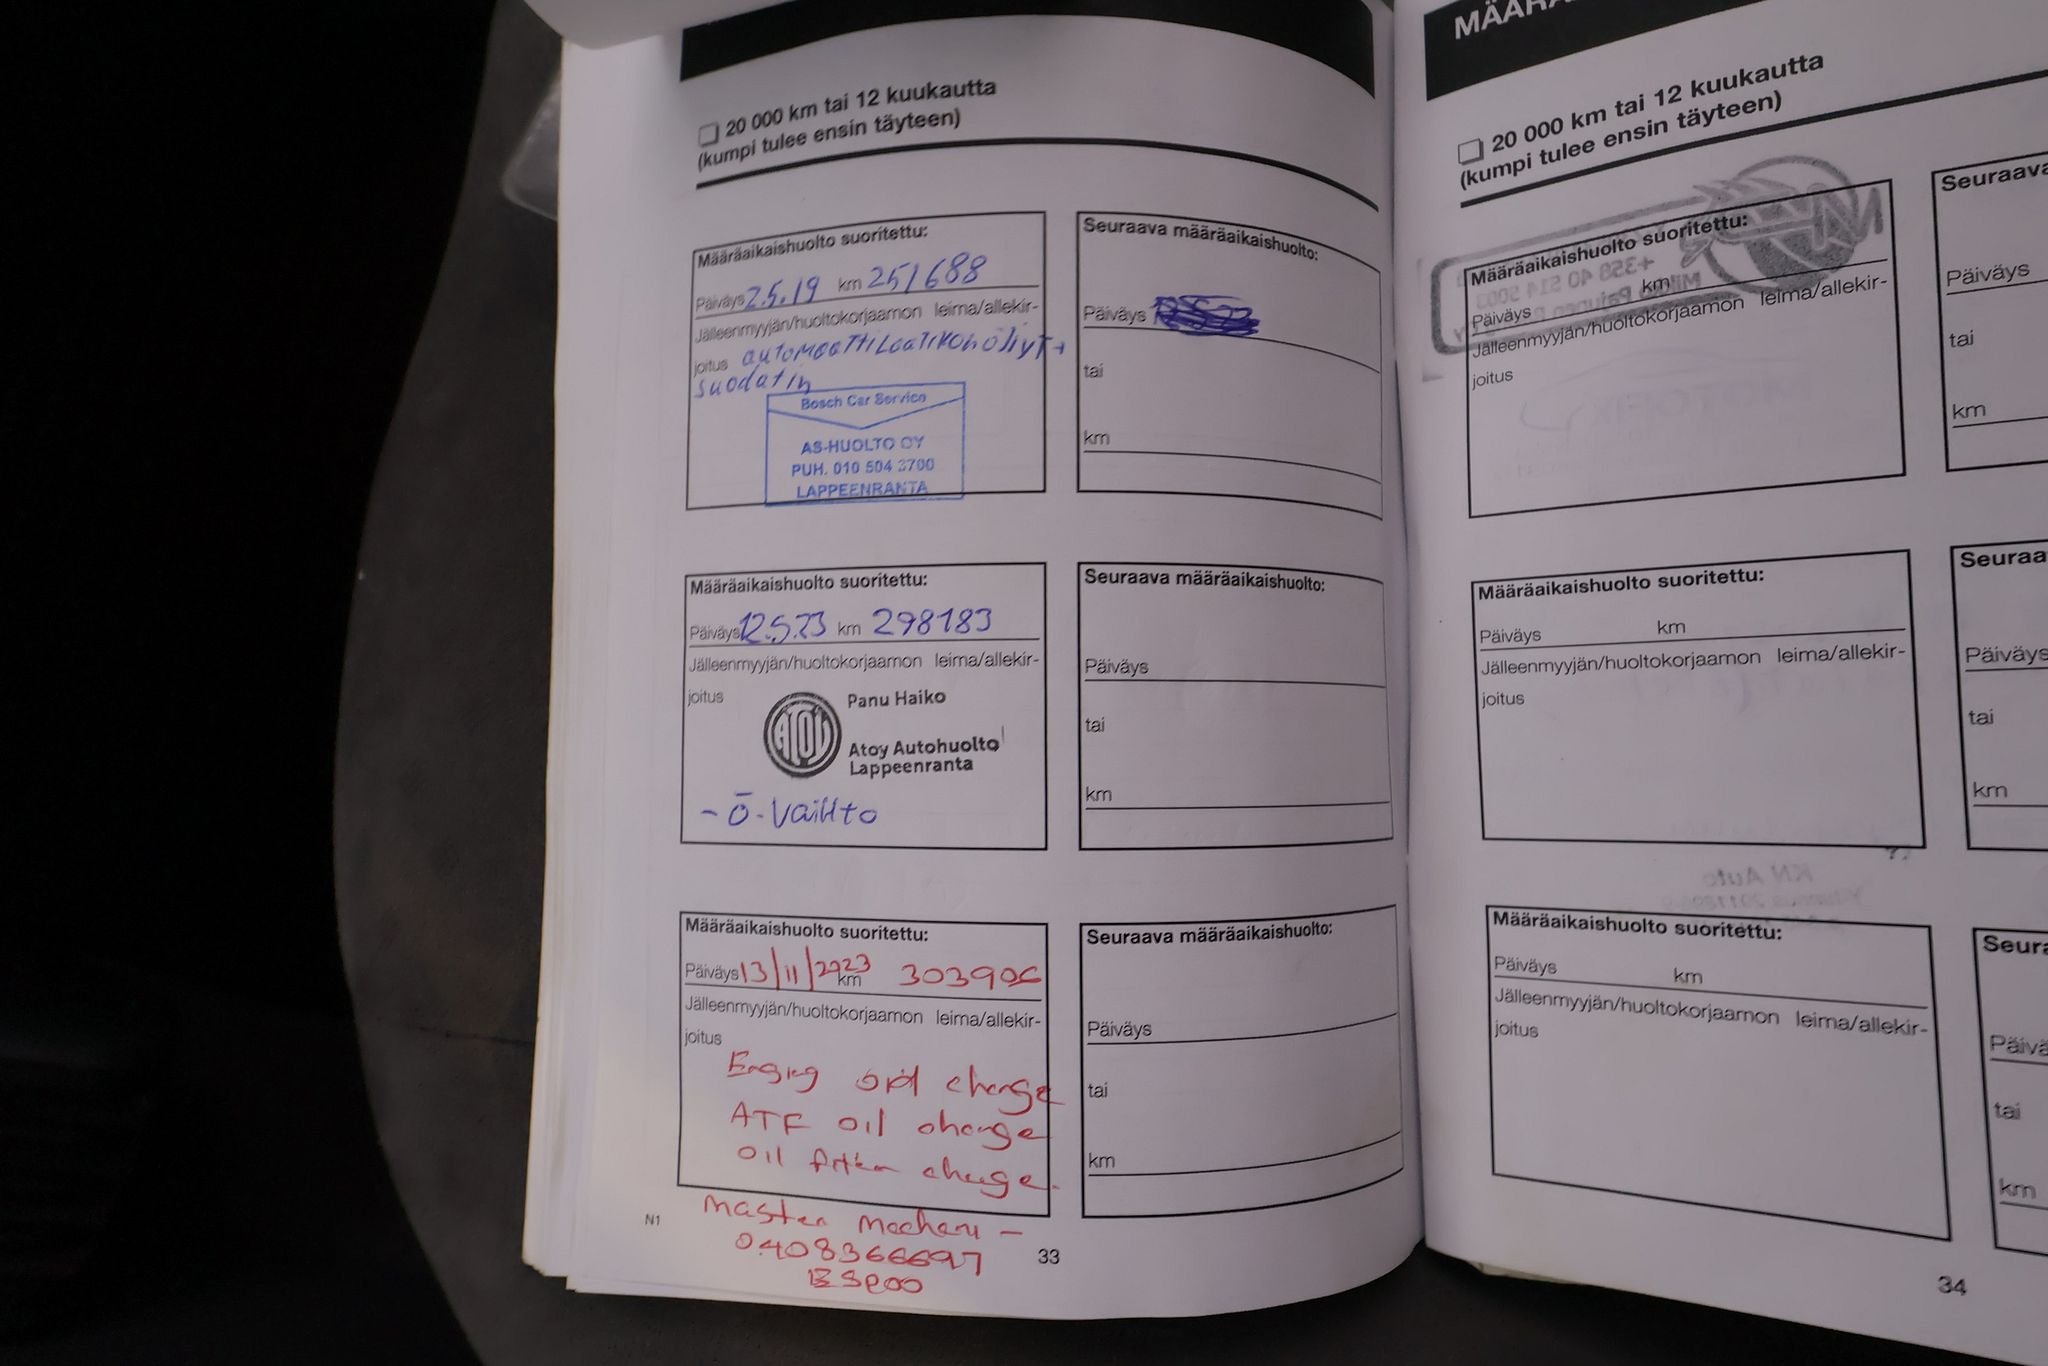 20 000 km tai 12 kuukautta
(kumpi tulee ensin täyteen)
Määräaikaishuolto suoritettu:
Päiväys 2.5.19 km 251688
Jälleenmyyjän/huoltokorjaamon leima/allekir-
joitus automaattilaatikonöljyt +
suodatin
Bosch Car Service
AS-HUOLTO OY
PUH. 010 504 3700
LAPPEENRANTA
Seuraava määräaikaishuolto:
Päiväys
tai
km
Määräaikaishuolto suoritettu:
Päiväys 12.5.23 km 298183
Jälleenmyyjän/huoltokorjaamon leima/allekir-
joitus
ATOY
Panu Haiko
Atoy Autohuolto
Lappeenranta
- ö-vaihto
Seuraava määräaikaishuolto:
Päiväys
tai
km
Määräaikaishuolto suoritettu:
Päiväys 13/11/2023 km 303906
Jälleenmyyjän/huoltokorjaamon leima/allekir-
joitus
oil change
ATF oil change
oil change.
Master
0408366697
Espoo
Seuraava määräaikaishuolto:
Päiväys
tai
km
N1
33
20 000 km tai 12 kuukautta
(kumpi tulee ensin täyteen)
Määräaikaishuolto suoritettu:
Päiväys km
Jälleenmyyjän/huoltokorjaamon leima/allekir-
joitus
Päiväys
tai
km
Määräaikaishuolto suoritettu:
Päiväys km
Jälleenmyyjän/huoltokorjaamon leima/allekir-
joitus
Päiväys
tai
km
Määräaikaishuolto suoritettu:
Päiväys km
Jälleenmyyjän/huoltokorjaamon leima/allekir-
joitus
tai
km
34